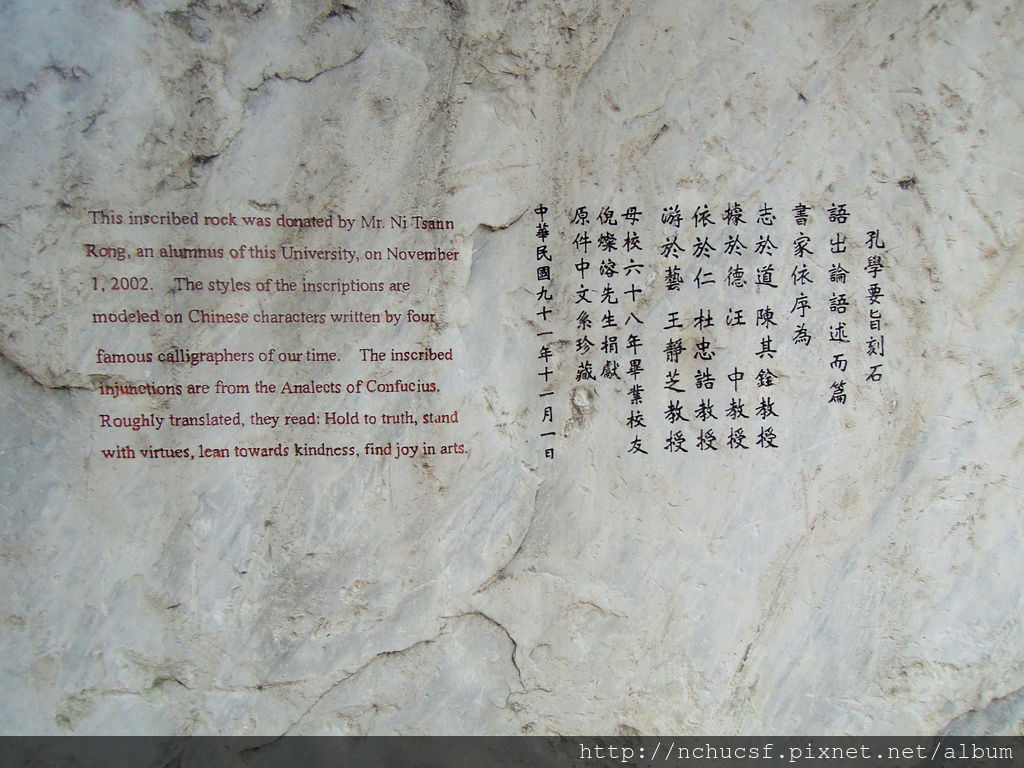 This inscribed rock was donated by Mr. Ni Tsann
Rong, an alumnus of this University, on November
1, 2002. The styles of the inscriptions are
modeled on Chinese characters written by four
famous calligraphers of our time. The inscribed
injunctions are from the Analects of Confucius.
Roughly translated, they read: Hold to truth, stand
with virtues, lean towards kindness, find joy in arts.
孔學要旨刻石
語出論語述而篇
書家依序為
志於道 陳其銓教授
據於德 汪 中教授
依於仁 杜忠誥教授
游於藝 王靜芝教授
母校六十八年畢業校友
倪燦溶先生捐獻
原件中文系珍藏
中華民國九十一年十一月一日
http://nchucsf.pixnet.net/album